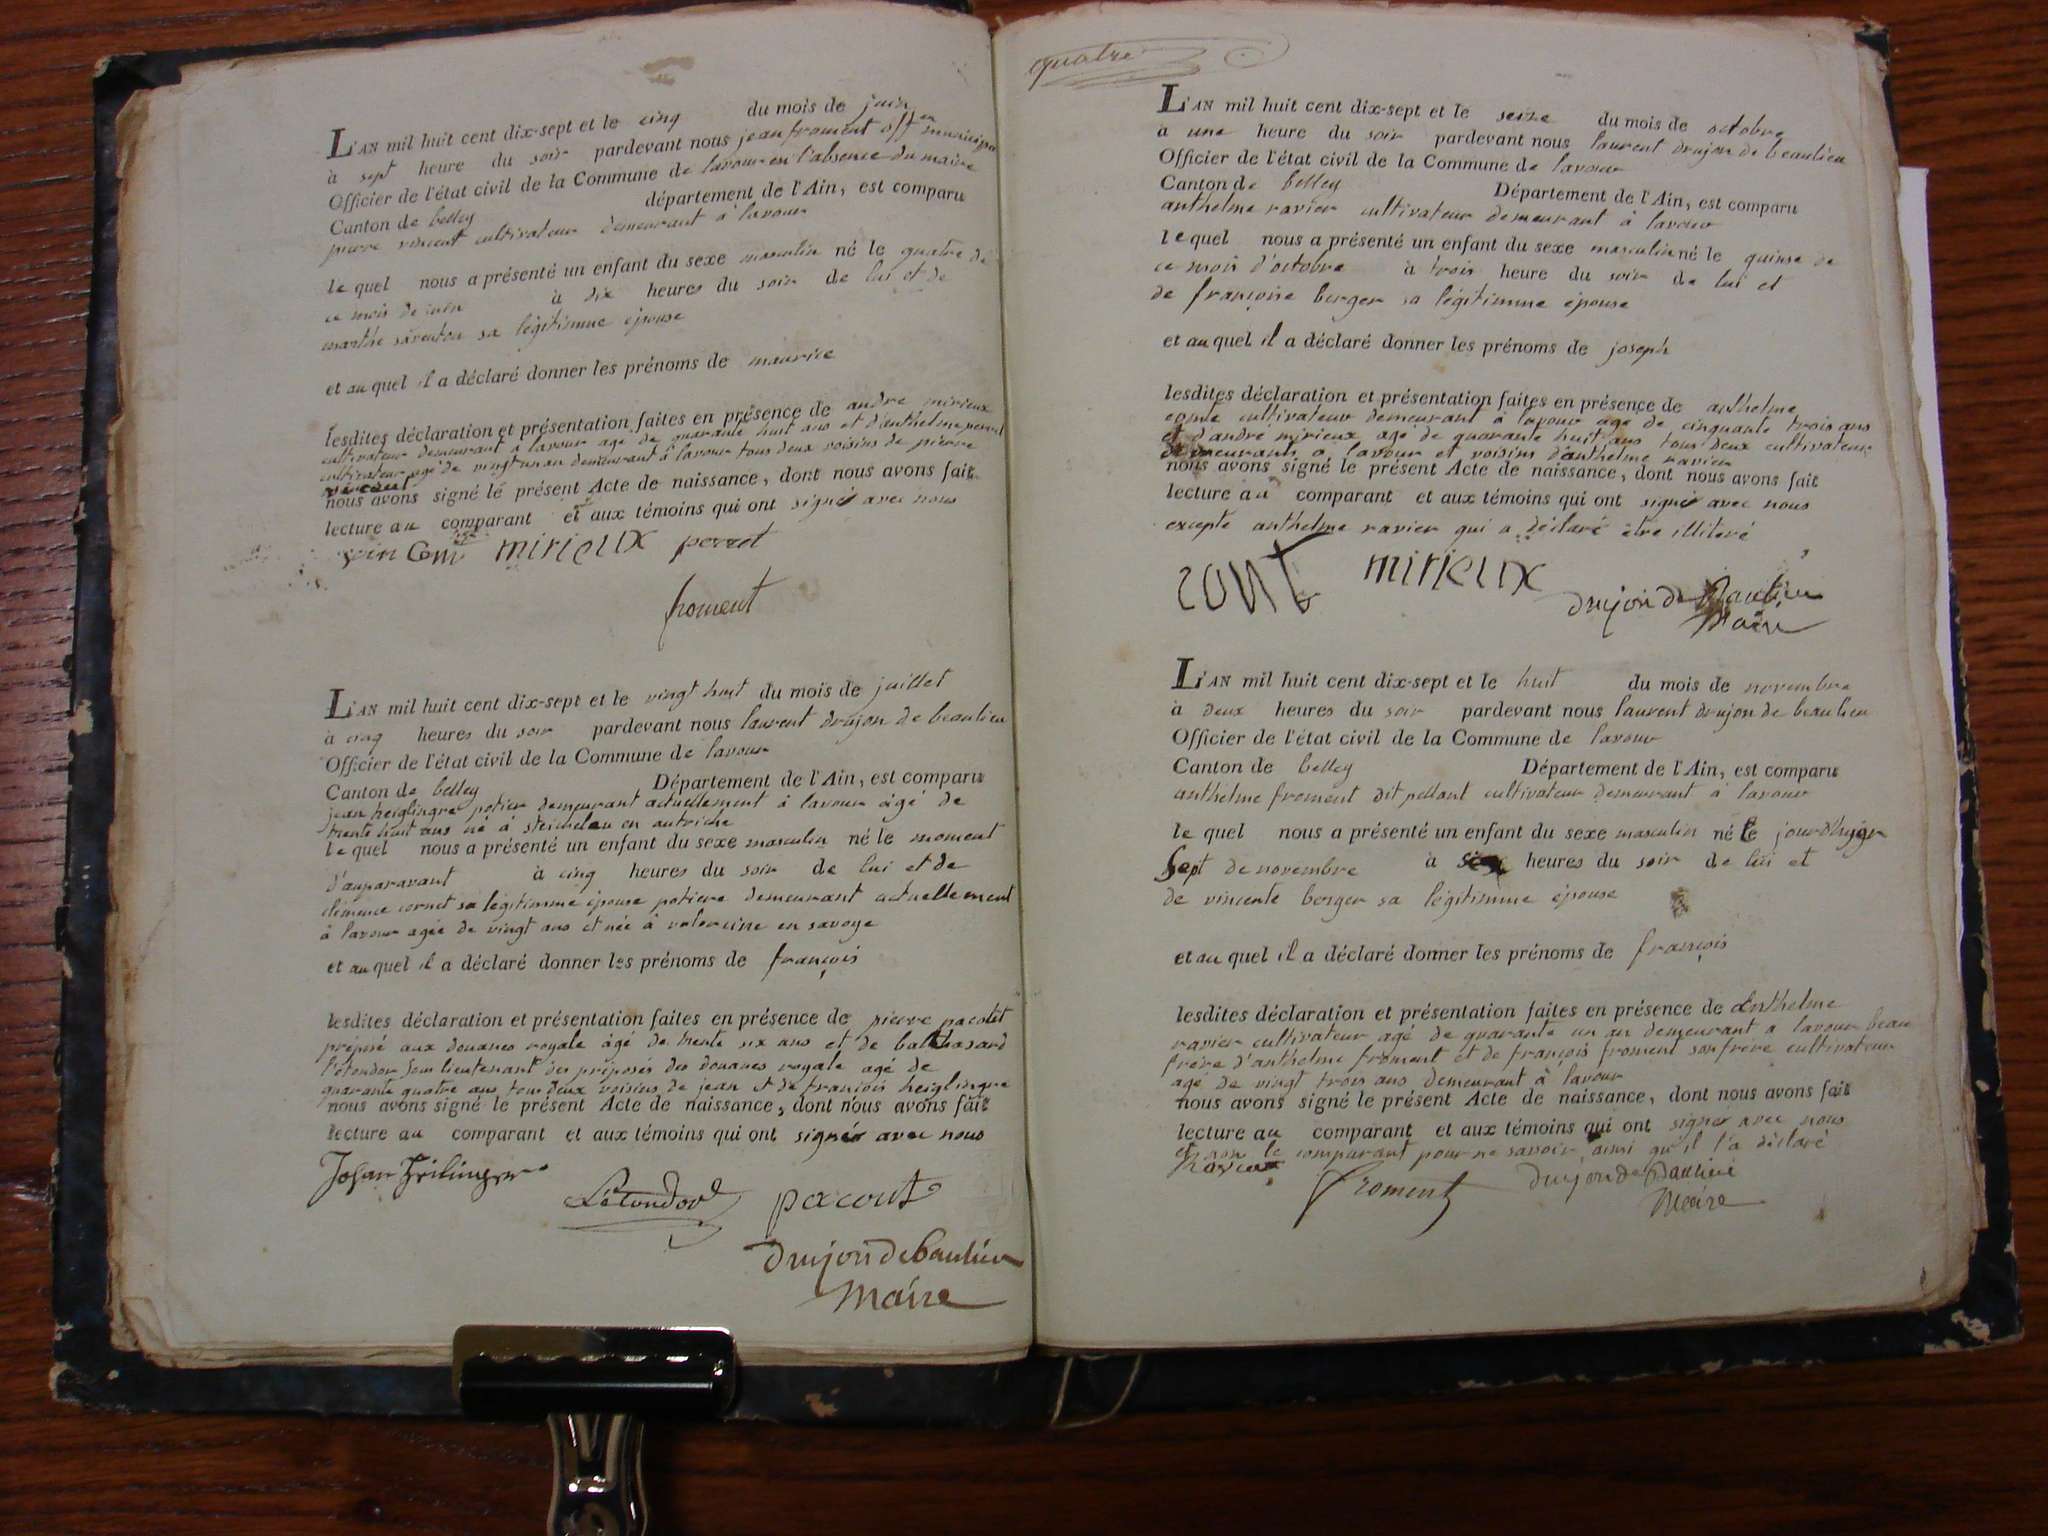 L'AN mil huit cent dix-sept et le cinq du mois de juin
à sept heure du soir pardevant nous jean froment off en municipa
Officier de l'état civil de la Commune de lavour en l'absence du maire
Canton de belley département de l'Ain, est comparu
pierre vincent cultivateur demeurant à lavour
le quel nous a présenté un enfant du sexe masculin né le quatre de
ce mois de juin à dix heures du soir de lui et de
marthe sa légitimme épouse
et au quel il a déclaré donner les prénoms de maurice
lesdites déclaration et présentation faites en présence de andre mirieux
cultivateur demeurant à lavour agé de quarante huit ans et d'anthelme perret
cultivateur agé de vingt un an demeurant à lavour tous deux voisins de pierre
vincent
nous avons signé le présent Acte de naissance, dont nous avons fait
lecture au comparant et aux témoins qui ont signés avec nous
mirieux perret
froment
L'AN mil huit cent dix-sept et le vingt huit du mois de juillet
à cinq heures du soir pardevant nous laurent drujon de beaulieu
Officier de l'état civil de la Commune de lavour
Canton de belley Département de l'Ain, est comparu
jean heiglingre potier demeurant actuellement à lavour âgé de
trente huit ans né à en autriche
le quel nous a présenté un enfant du sexe masculin né le moment
d'auparavant à cinq heures du soir de lui et de
clémence cornet sa légitimme épouse potiere demeurant actuellement
à lavour agée de vingt ans et née à valorcine en savoye
et au quel il a déclaré donner les prénoms de françois
lesdites déclaration et présentation faites en présence de pierre pacotet
préposé aux douanes royale âgé de trente six ans et de balthasard
l'étondor sous lieutenant des préposés des douanes royale agé de
quarante quatre ans tous deux voisins de jean et de françois heiglingre
nous avons signé le présent Acte de naissance, dont nous avons fait
lecture au comparant et aux témoins qui ont signés avec nous
Johan
Létondor pacout
drujon de baulieu
Maire
quatre
L'AN mil huit cent dix-sept et le seize du mois de octobre
à une heure du soir pardevant nous laurent drujon de beaulieu
Officier de l'état civil de la Commune de lavour
Canton de belley Département de l'Ain, est comparu
anthelme ravier cultivateur demeurant à lavour
le quel nous a présenté un enfant du sexe masculin né le quinse de
ce mois d'octobre à trois heure du soir de lui et
de françoise berger sa légitimme épouse
et au quel il a déclaré donner les prénoms de joseph
lesdites déclaration et présentation faites en présence de anthelme
conte cultivateur demeurant à lavour age de cinquante trois ans
et d'andré mirieux age de quarante huit ans tous deux cultivateur
demeurants a lavour et voisins d'anthelme ravier
nous avons signé le présent Acte de naissance, dont nous avons fait
lecture au comparant et aux témoins qui ont signés avec nous
excepte anthelme ravier qui a déclaré être illiteré
cont mirieux drujon de Baulieu
Maire
L'AN mil huit cent dix-sept et le huit du mois de novembre
à deux heures du soir pardevant nous laurent drujon de beaulieu
Officier de l'état civil de la Commune de lavour
Canton de belley Département de l'Ain, est comparu
anthelme froment dit pellant cultivateur demeurant à lavour
le quel nous a présenté un enfant du sexe masculin né le jourd'huyer
sept de novembre à six heures du soir de lui et
de vincente berger sa légitimme épouse
et au quel il a déclaré donner les prénoms de françois
lesdites déclaration et présentation faites en présence de anthelme
ravier cultivateur agé de quarante un an demeurant a lavour beau
frère d'anthelme froment et de françois froment son frère cultivateur
age de vingt trois ans demeurant à lavour
nous avons signé le présent Acte de naissance, dont nous avons fait
lecture au comparant et aux témoins qui ont signés avec nous
et non le comparant pour ne savoir ainsi qu'il l'a déclaré
froment drujon de Baulieu
Maire